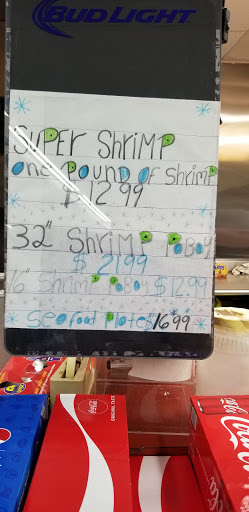 BUD LIGHT
SUPER ShriMP
one Pound of Shrimp
$12.99
32" ShriMP PoBoy
$21.99
16" Shrimp PoBoy $12.99
Seafood Plate $16.99
Coca-Cola
ORIGINAL TASTE
Coca-Cola